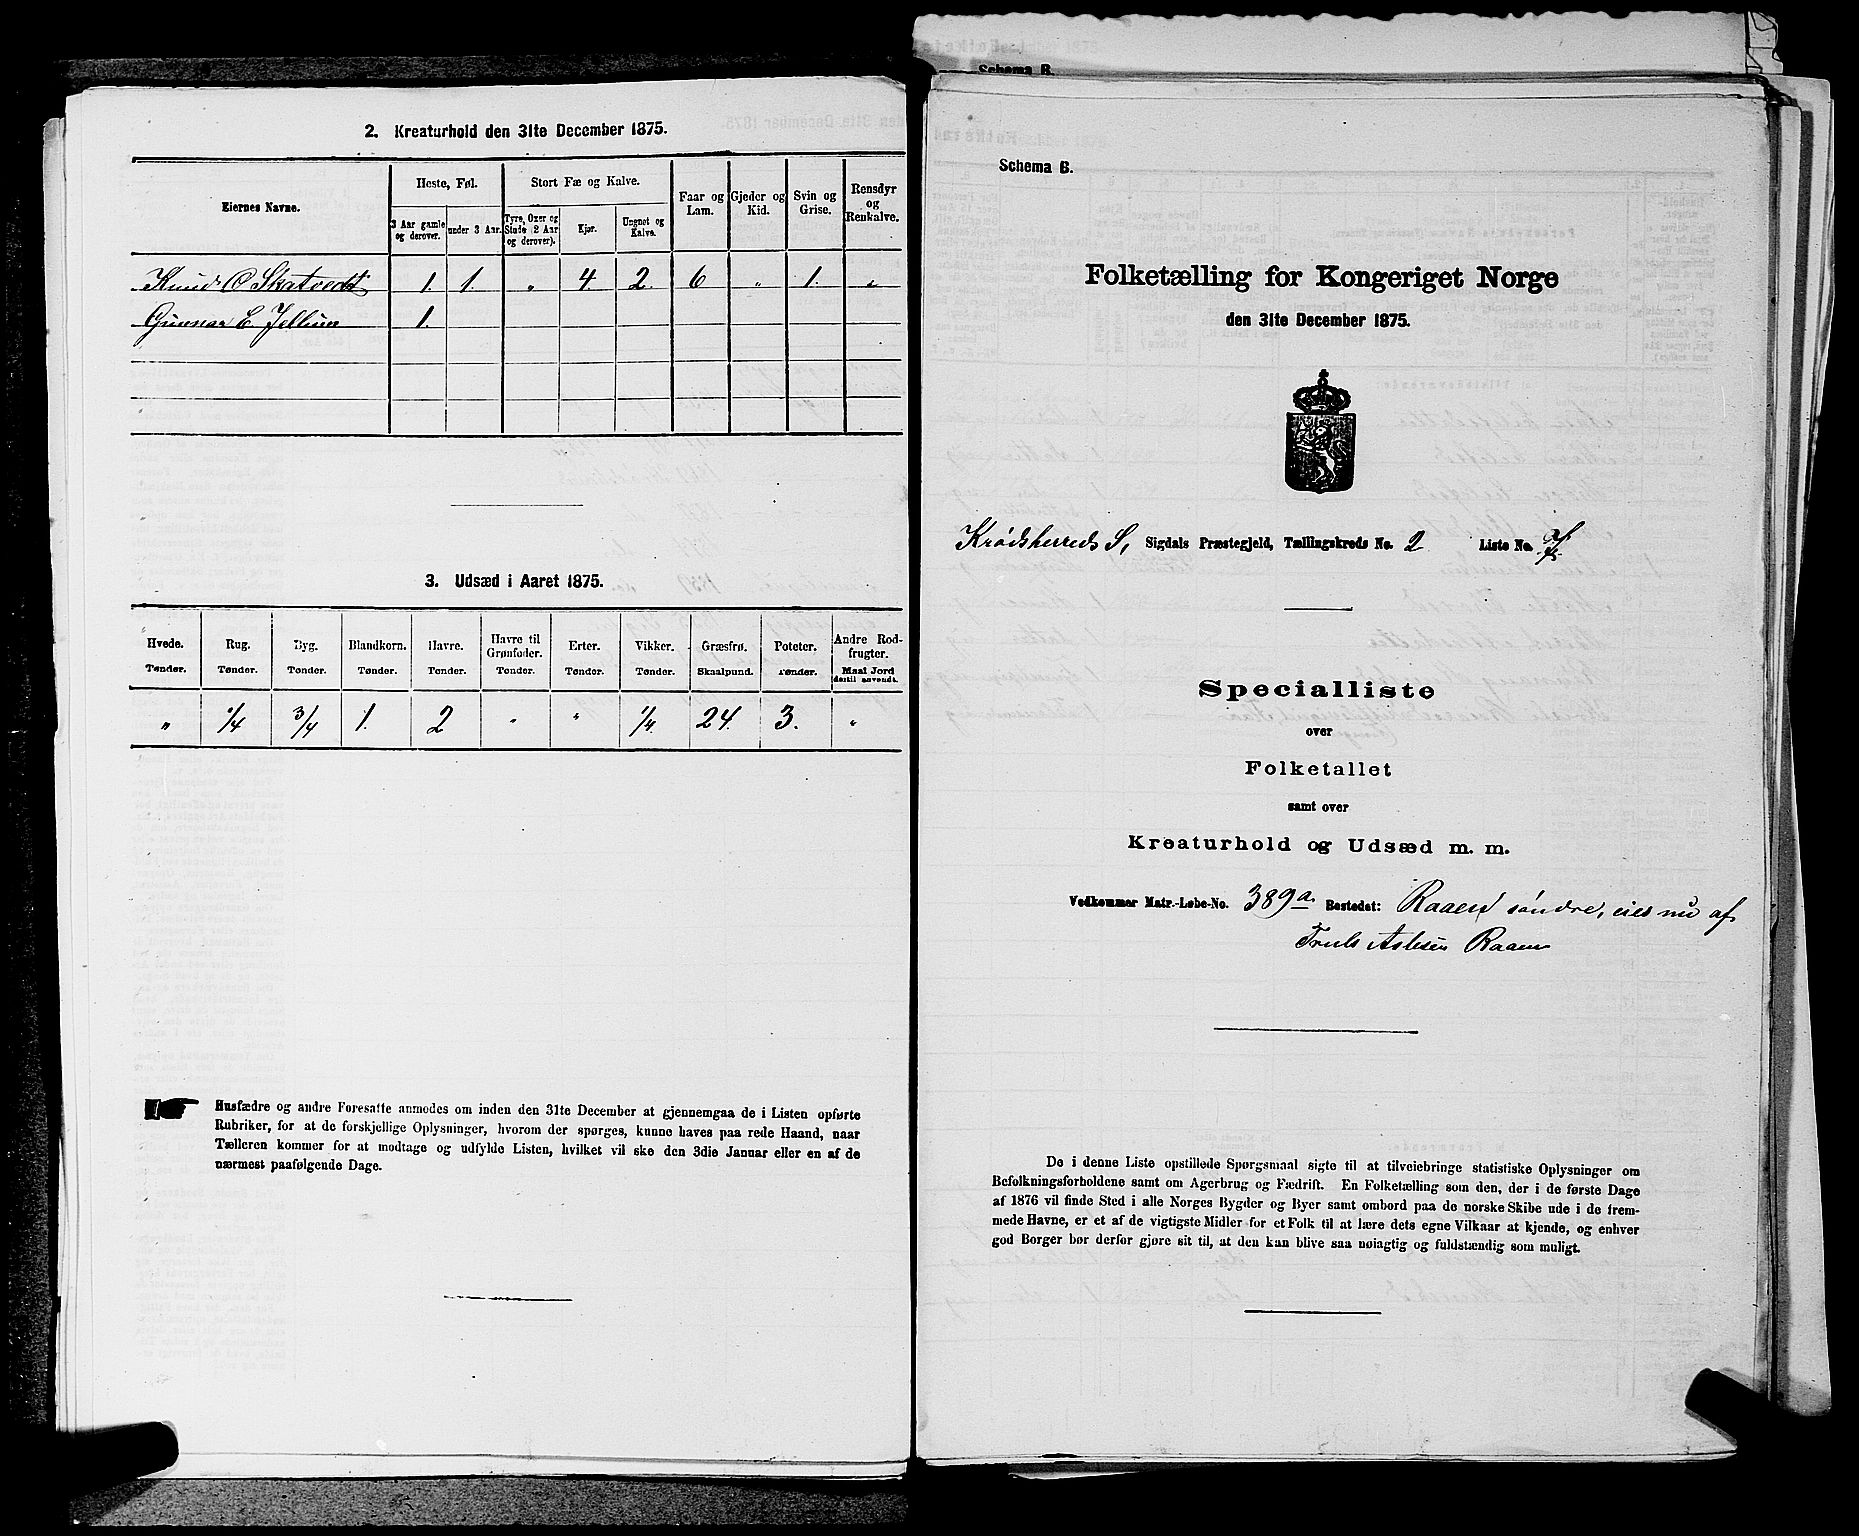 2. Kreaturhold den 31te December 1875.
Eiernes Navne.
Heste, Føl.
Stort Fæ og Kalve.
Faar og Lam.
Gjeder og Kid.
Svin og Grise.
Rensdyr og Renkalve.
3 Aar gamle og derover.
under 3 Aar.
Tyre, Oxer og Stude (2 Aar og derover).
Kjør.
Ungnet og Kalve.
Knud O Skatvedt 1. 1. " 4. 2. 6 " 1. "
Gunnar E Jellum 1.
3. Udsæd i Aaret 1875.
Hvede. Rug. Byg. Blandkorn. Havre. Havre til Grønfoder. Erter. Vikker. Græsfrø. Poteter. Andre Rodfrugter.
Tønder. Tønder. Tønder. Tønder. Tønder. Tønder. Tønder. Tønder. Skaalpund. Tønder. Maal Jord dertil anvendt.
" 1/4 3/4 1. 2 " " 1/4. 24. 3. "
Husfædre og andre Foresatte anmodes om inden den 31te December at gjennemgaa de i Listen opførte
Rubriker, for at de forskjellige Oplysninger, hvorom der spørges, kunne haves paa rede Haand, naar
Tælleren kommer for at modtage og udfylde Listen, hvilket vil ske den 3die Januar eller en af de
nærmest paafølgende Dage.
Schema B.
Schema B.
Folketælling for Kongeriget Norge
den 31te December 1875.
Krødsherreds S, Sigdals Præstegjeld, Tællingskreds No. 2 Liste No.
Specialliste
over
Folketallet
samt over
Kreaturhold og Udsæd m. m.
Vedkommer Matr.-Løbe-No. 389a. Bostedet: Raaen søndre, eies nu af
Truls Aslesen Raaen
De i denne Liste opstillede Spørgsmaal sigte til at tilveiebringe statistiske Oplysninger om
Befolkningsforholdene samt om Agerbrug og Fædrift. En Folketælling som den, der i de første Dage
af 1876 vil finde Sted i alle Norges Bygder og Byer samt ombord paa de norske Skibe ude i de frem-
mede Havne, er et af de vigtigste Midler for et Folk til at lære dets egne Vilkaar at kjende, og enhver
god Borger bør derfor gjøre sit til, at den kan blive saa nøiagtig og fuldstændig som muligt.